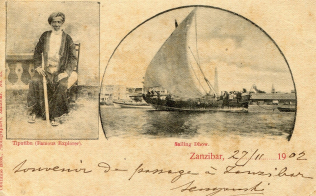 Tipotibo (Famous Explorer).
Sailing Dhow.
Zanzibar, 27/11 1902
Souvenir de passage à Zanzibar